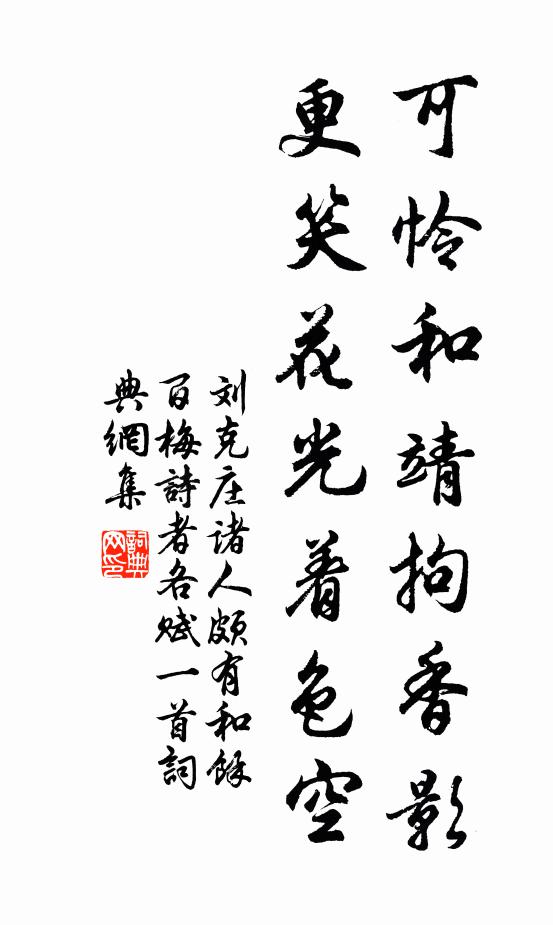 可怜和靖拘香影
更笑花光着色空
刘克庄诸人颇有和馀
百梅詩者各赋一首詞
典網集
詞典网印